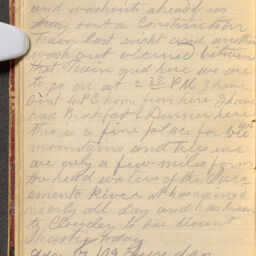 and washouts ahead of us
they sent a Construction
Train last night and another
wash out occured between
that train and here we are
to go on at 2 PM 3 hours
from here I have
had Breakfast & Dinner here
This is a fine place for
mountains and trees we
are only a few miles form
the head waters of the Sacr
emento River it has rained
nearly all day and has been
to Cloudy to see Mount
Shasta today